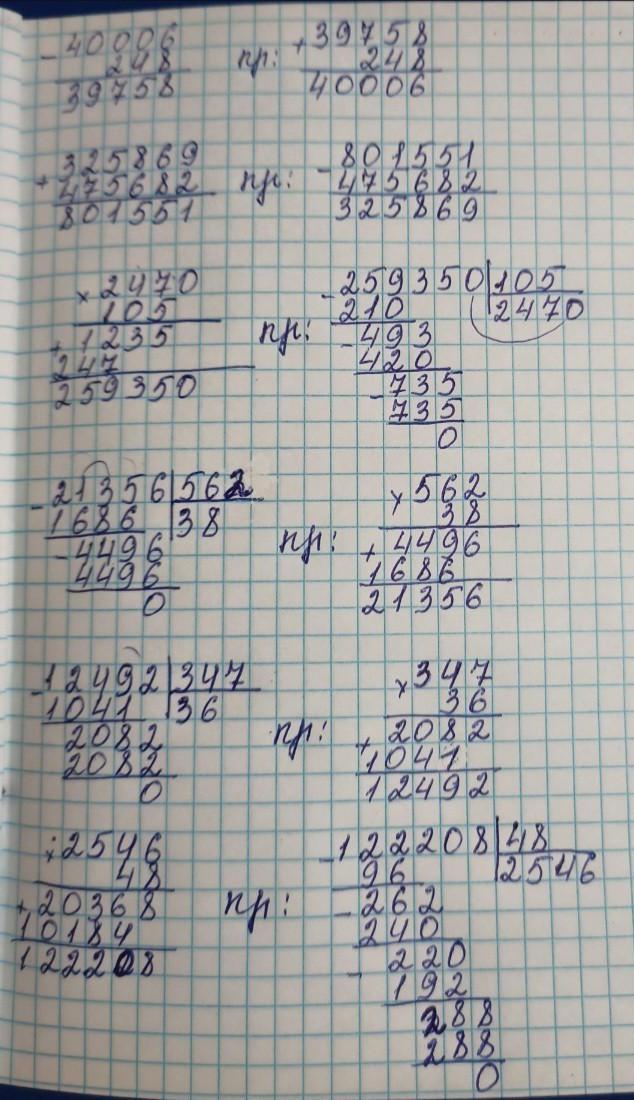 - 40006 пр: + 39758
248 248
39758 40006
+ 325869 пр: - 801551
475682 475682
801551 325869
× 2470 пр: - 259350 | 105
105 210 2470
+ 1235 - 493
247 420
259350 - 735
735
0
- 21356 | 562 пр: × 562
1686 38 38
- 4496 + 4496
4496 1686
0 21356
- 12492 | 347 пр: × 347
1041 36 36
2082 + 2082
2082 1041
0 12492
× 2546 пр: - 122208 | 48
48 96 2546
+ 20368 - 262
10184 240
122208 - 220
192
288
288
0